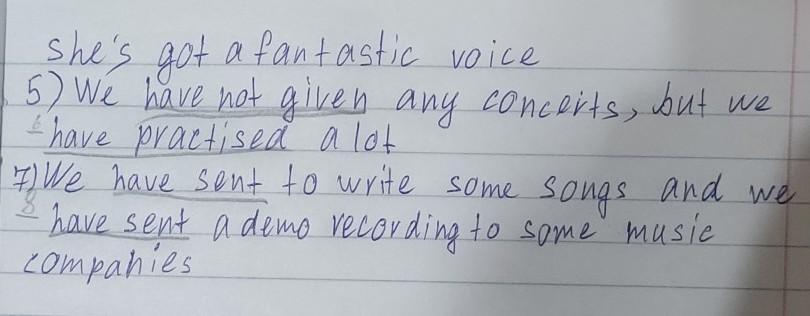 she's got a fantastic voice
5) We have not given any concerts, but we
6 have practised a lot
7) We have sent to write some songs and we
8 have sent a demo recording to some music
companies